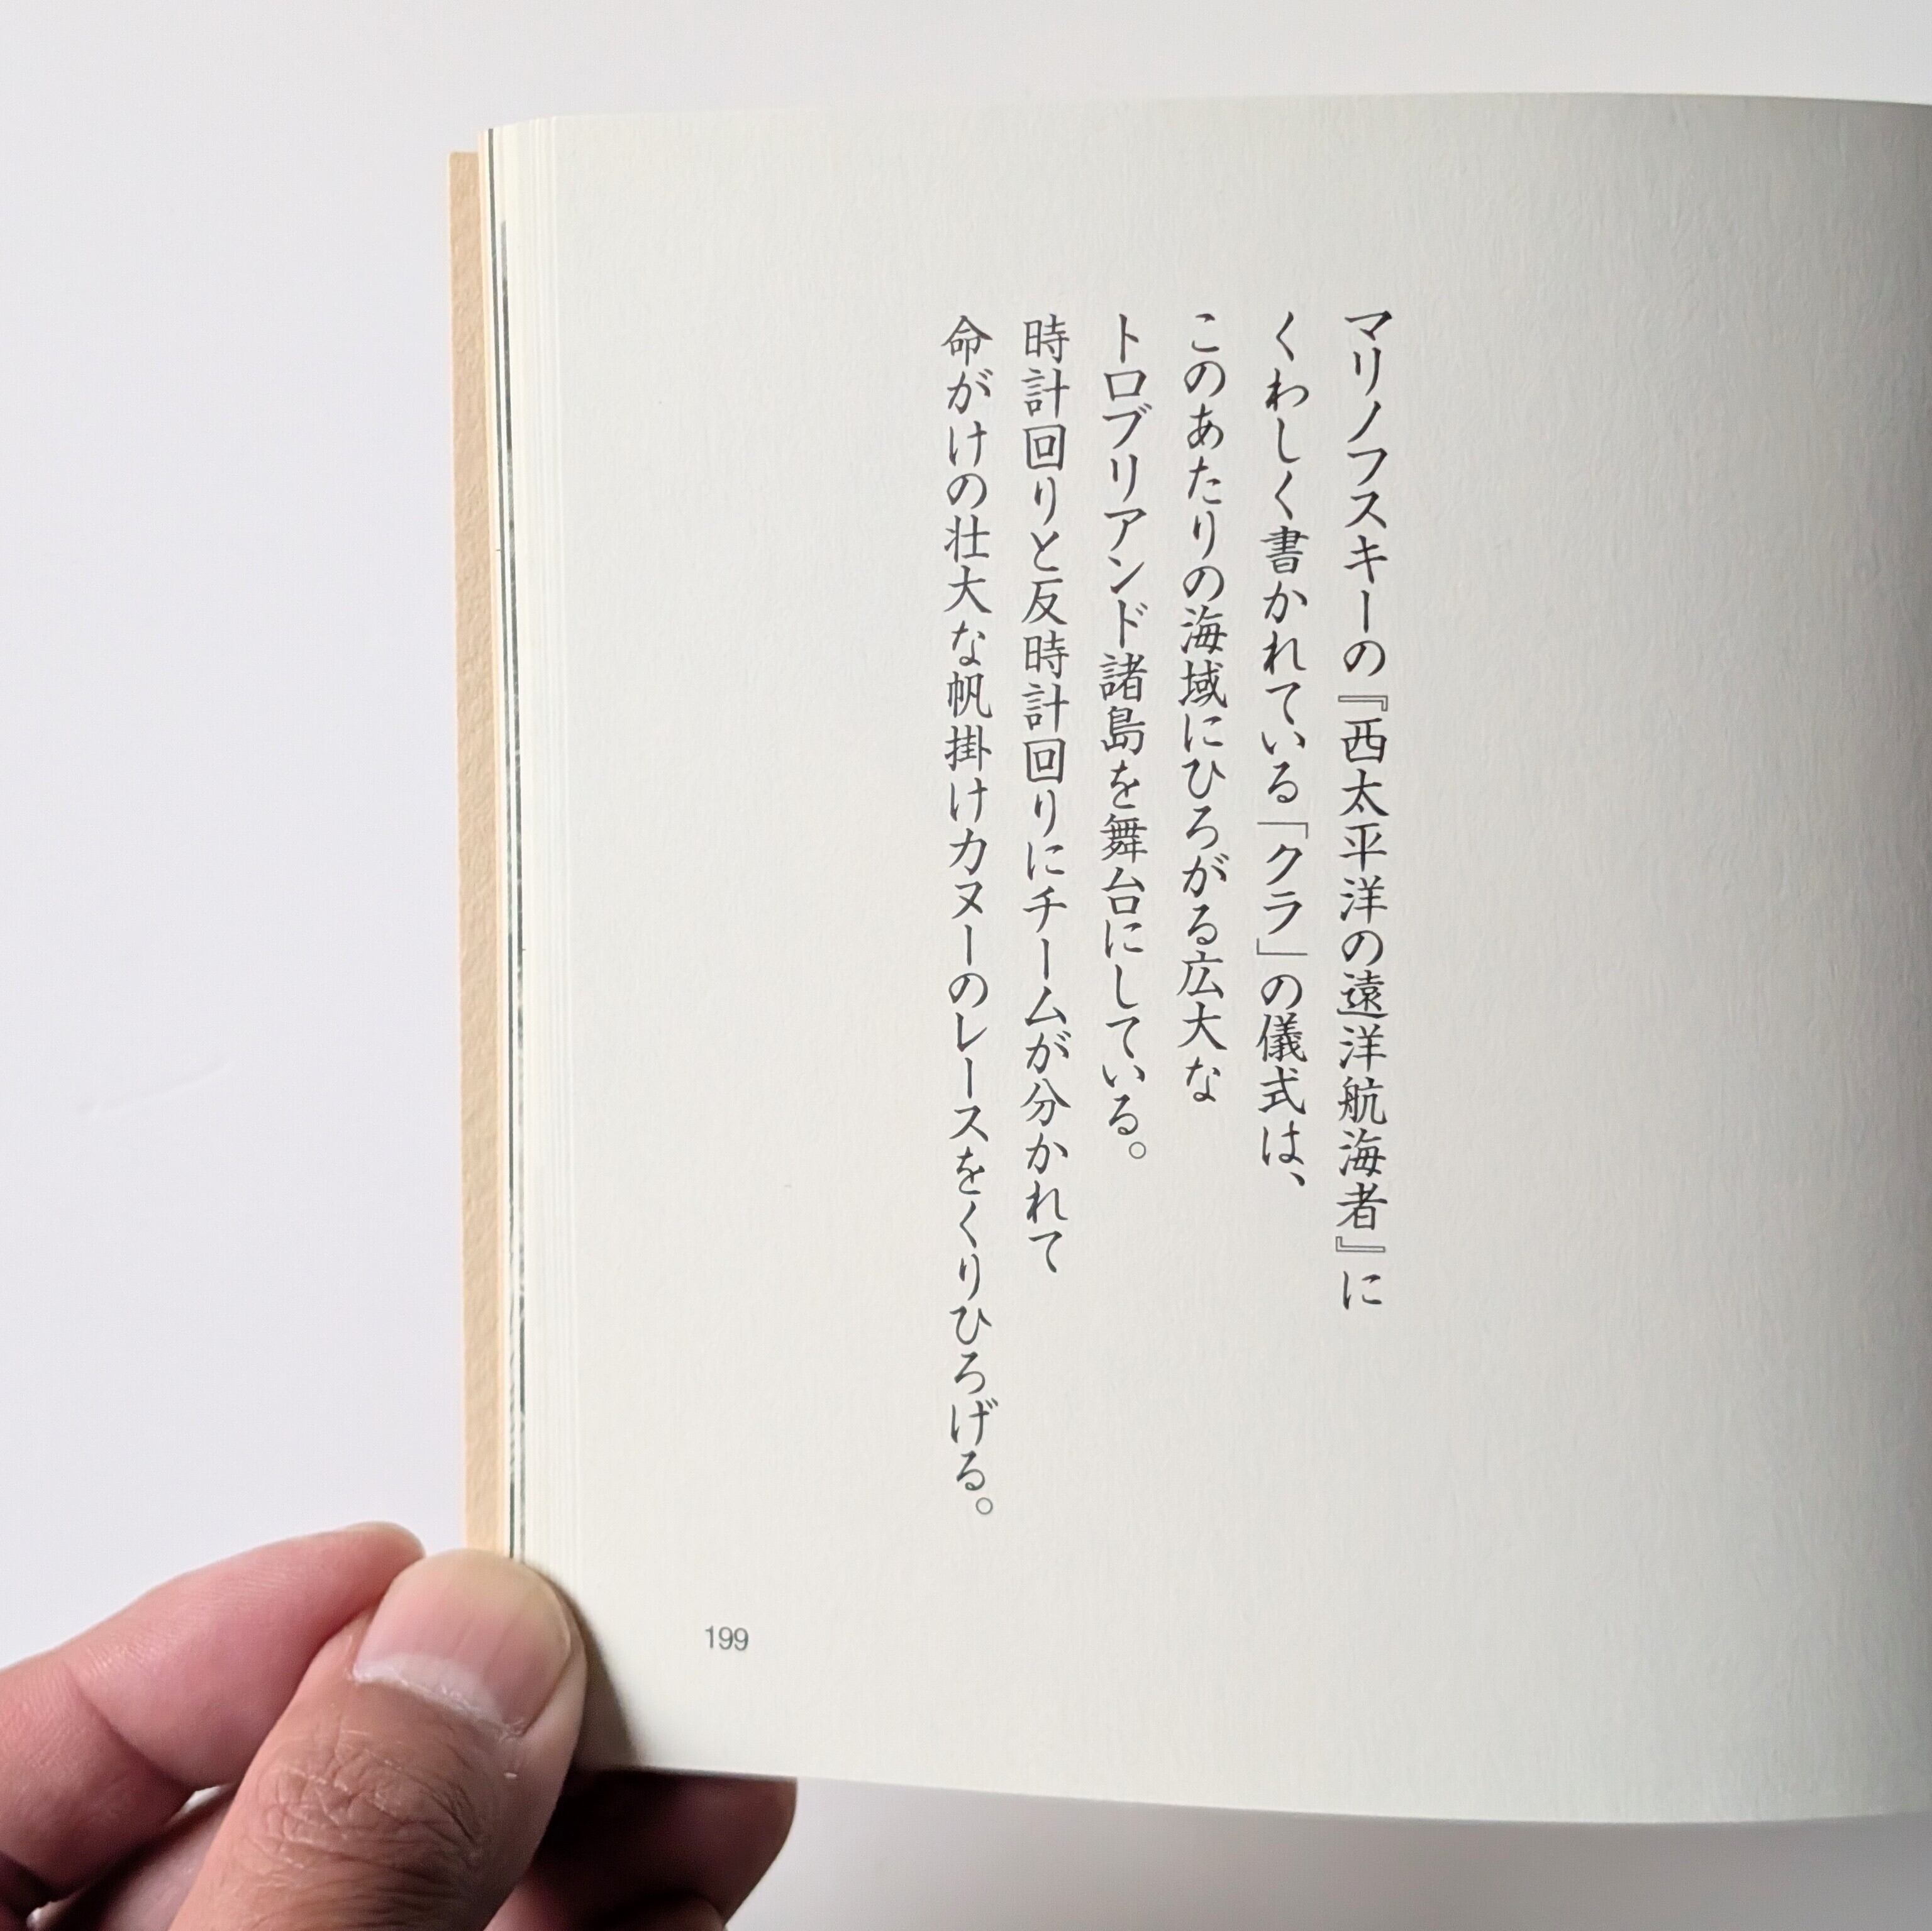 マリノフスキーの『西太平洋の遠洋航海者』に
くわしく書かれている「クラ」の儀式は、
このあたりの海域にひろがる広大な
トロブリアンド諸島を舞台にしている。
時計回りと反時計回りにチームが分かれて
命がけの壮大な帆掛けカヌーのレースをくりひろげる。
199